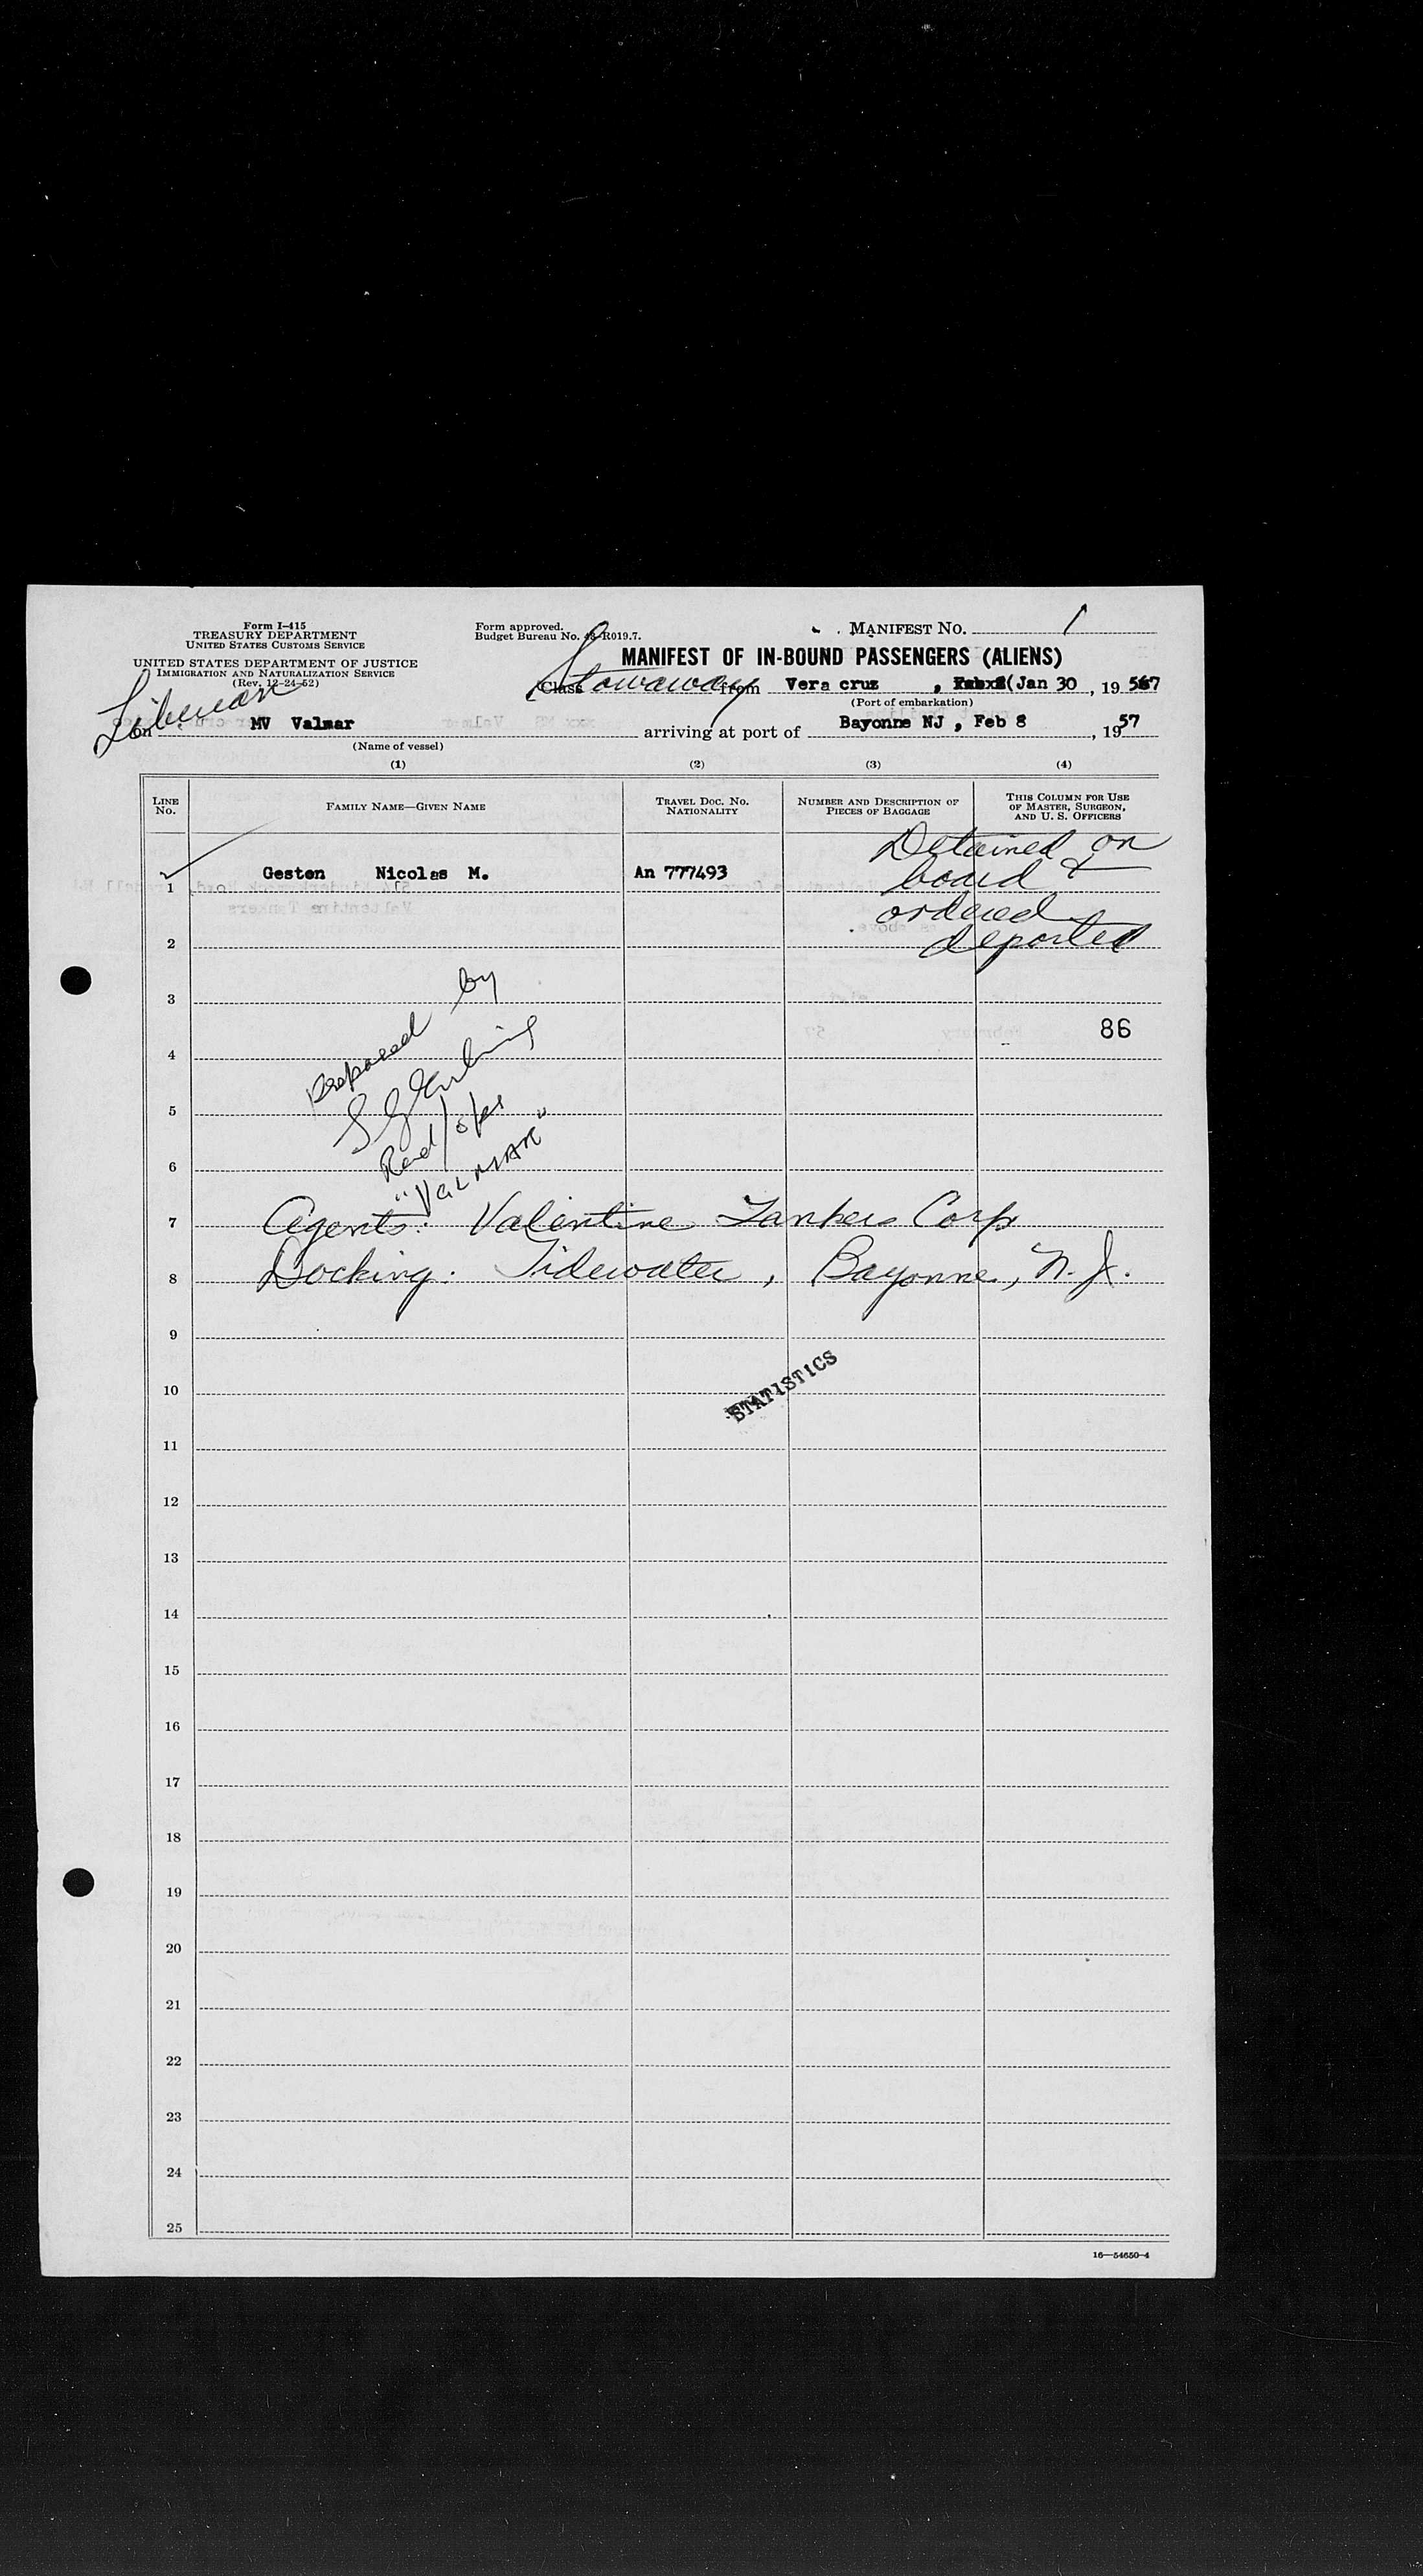 Form I-415
TREASURY DEPARTMENT
UNITED STATES CUSTOMS SERVICE
UNITED STATES DEPARTMENT OF JUSTICE
IMMIGRATION AND NATURALIZATION SERVICE
(Rev. 12-24-52)
Form approved.
Budget Bureau No. 43-R019.7.
MANIFEST NO. 1
MANIFEST OF IN-BOUND PASSENGERS (ALIENS)
Class Stowaway from Vera cruz , (Jan 30 , 19 57
(Port of embarkation)
Liberian
on MV Valmar arriving at port of Bayonne NJ , Feb 8 , 1957
(Name of vessel)
(1) (2) (3) (4)
LINE NO. FAMILY NAME—GIVEN NAME TRAVEL DOC. NO. NATIONALITY NUMBER AND DESCRIPTION OF PIECES OF BAGGAGE THIS COLUMN FOR USE OF MASTER, SURGEON, AND U. S. OFFICERS
1 Geston Nicolas M. An 777493
Detained on
board &
ordered
deported
2
3
86
4
prepared by
5
Rad/o/per
6
"VALMAR"
7 Agents: Valentine Tankers Corp
8 Docking: Tidewater, Bayonne, N.J.
9
10 STATISTICS
11
12
13
14
15
16
17
18
19
20
21
22
23
24
25
16—54650-4